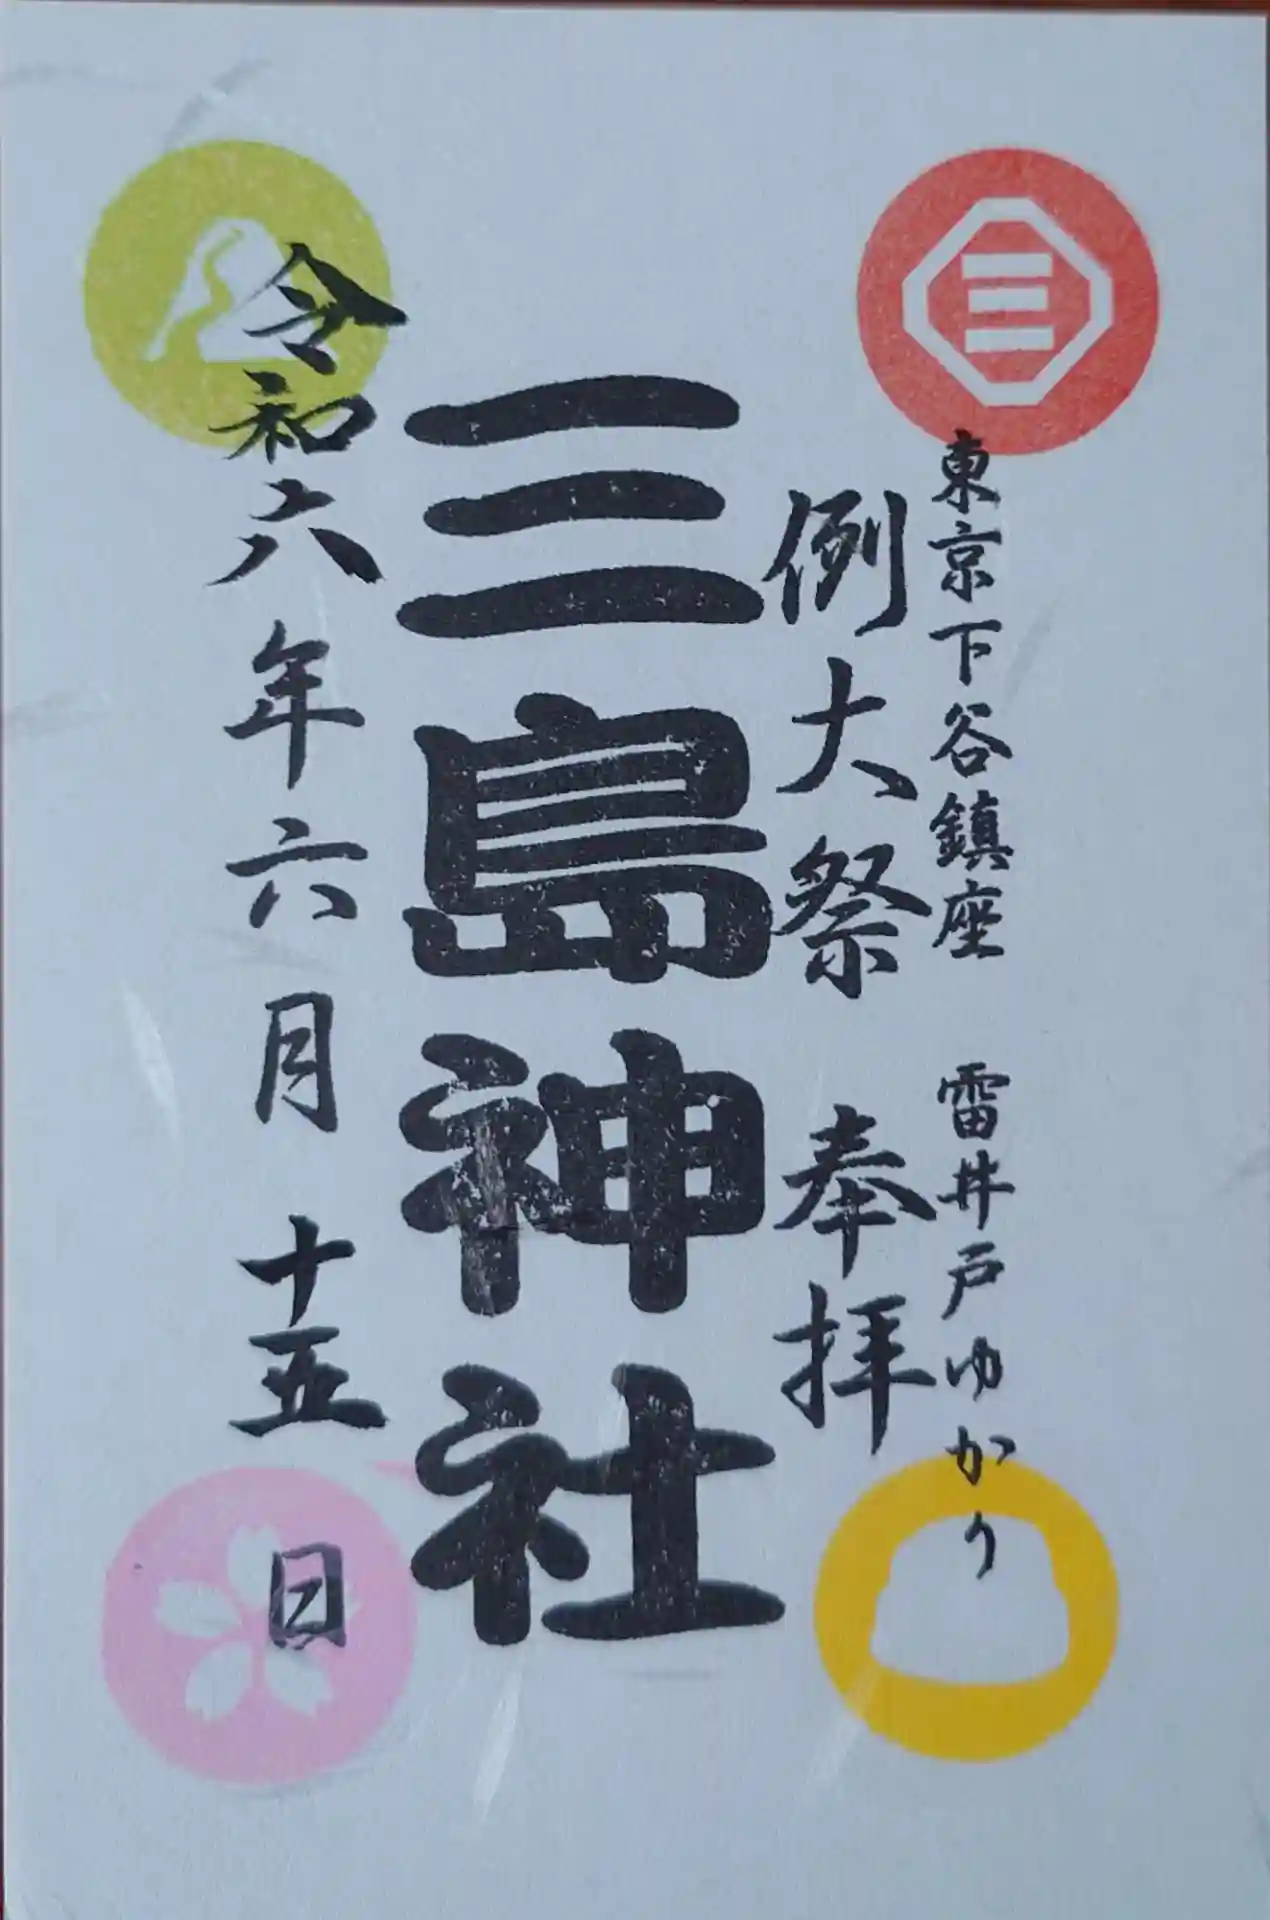 東京下谷鎮座 雷井戸ゆかり
例大祭 奉拝
三島神社
令和六年六月十五日
三